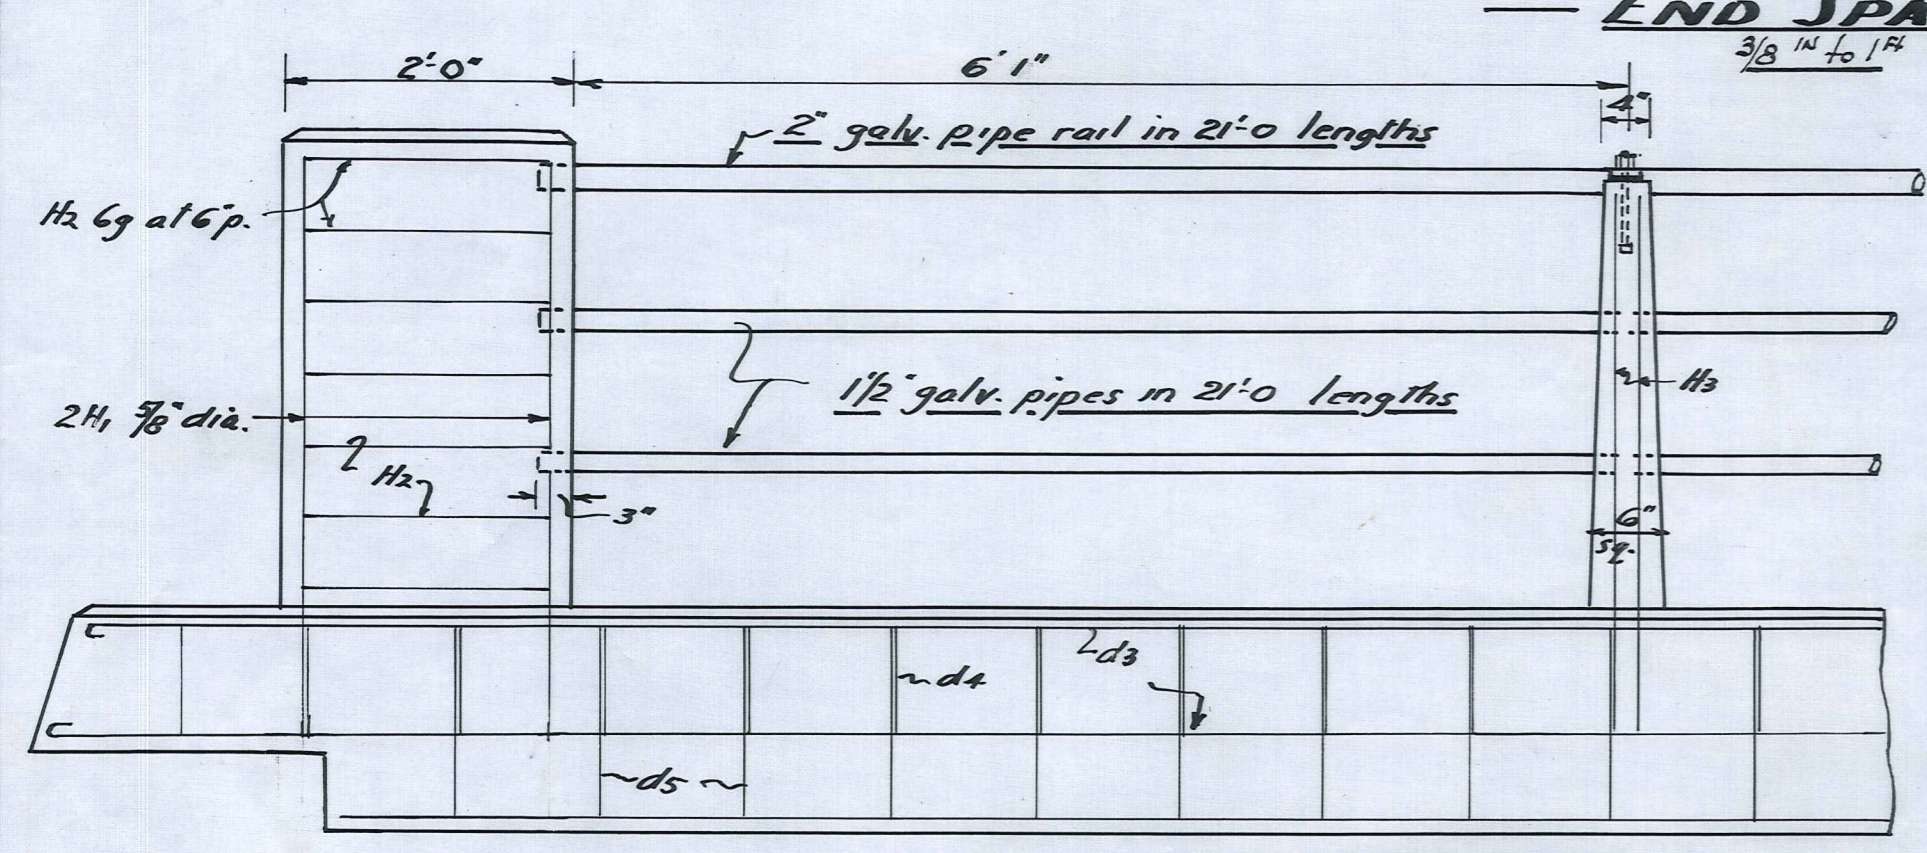 END SPA
3/8 IN to 1 Ft
2'-0"
6'1"
4"
2" galv. pipe rail in 21'-0 lengths
H2 6g at 6"p.
1½" galv. pipes in 21'-0 lengths
H3
2H1 5/8" dia.
H2
3"
6"
sq.
d3
d4
d5